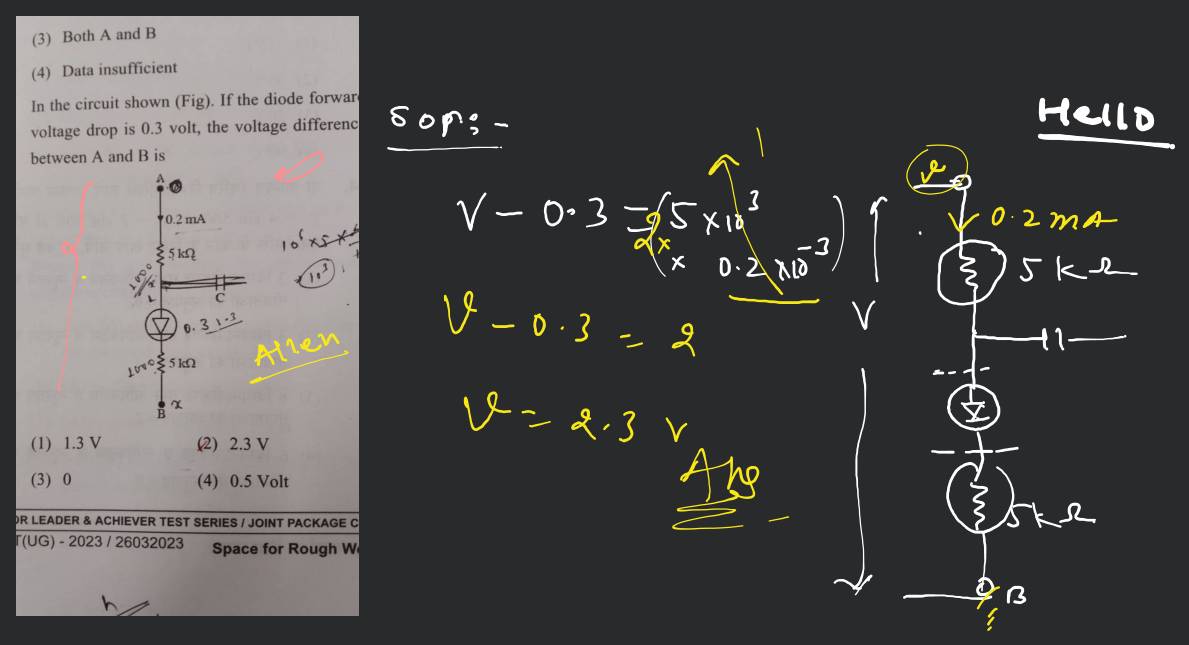 (3) Both A and B
(4) Data insufficient
In the circuit shown (Fig). If the diode forwar
voltage drop is 0.3 volt, the voltage differenc
between A and B is
A
0.2 mA
5 kΩ
C
0.3
1.3
1000
5 kΩ
B x
10⁶ x5x
10³
Allen
(1) 1.3 V (2) 2.3 V
(3) 0 (4) 0.5 Volt
OR LEADER & ACHIEVER TEST SERIES / JOINT PACKAGE C
T(UG) - 2023 / 26032023 Space for Rough W
Hello
V - 0.3 = 2x(5 x 10³
x 0.2 x10⁻³)
1
V - 0.3 = 2
V = 2.3 v
Ans
V
V
0.2 mA
5 kΩ
5kΩ
B